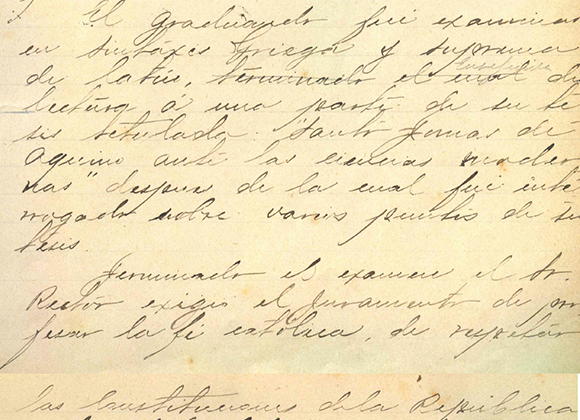 El graduando fué examinado
en sintáxes Griega y suprema
de latín, terminado el cual dió
lectura á una parte de su te
sis titulada: "Santo Tomas de
Aquino ante las ciencias moder
nas" despues de la cual fué inte
rrogado sobre varios puntos de su
tesis.
Terminado el examen el Sr.
Rector exigió el juramento de pro
fesar la fé católica, de respetar
las Constituciones de la República